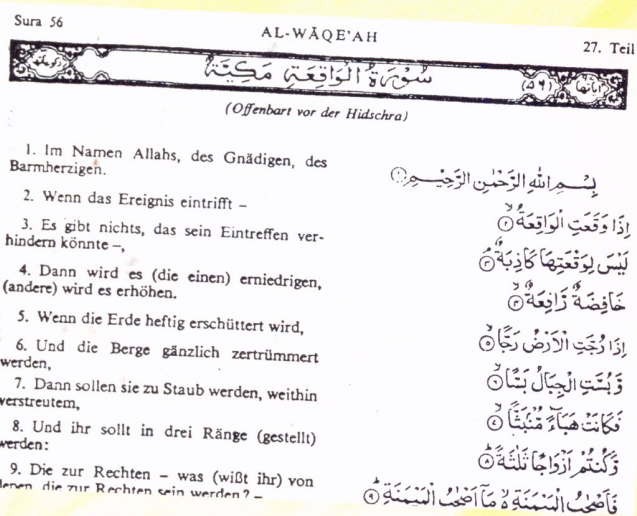 Sura 56
AL-WĀQE'AH
27. Teil
سُوْرَةُ الْوَاقِعَةِ مَكِّيَّةٌ
(٥٦)
(Offenbart vor der Hidschra)
1. Im Namen Allahs, des Gnädigen, des
Barmherzigen.
2. Wenn das Ereignis eintrifft –
3. Es gibt nichts, das sein Eintreffen ver-
hindern könnte –,
4. Dann wird es (die einen) erniedrigen,
(andere) wird es erhöhen.
5. Wenn die Erde heftig erschüttert wird,
6. Und die Berge gänzlich zertrümmert
werden,
7. Dann sollen sie zu Staub werden, weithin
verstreutem,
8. Und ihr sollt in drei Ränge (gestellt)
werden:
9. Die zur Rechten – was (wißt ihr) von
denen, die zur Rechten sein werden? –
بِسْمِ اللهِ الرَّحْمٰنِ الرَّحِيْمِ ①
اِذَا وَقَعَتِ الْوَاقِعَةُ ②
لَيْسَ لِوَقْعَتِهَا كَاذِبَةٌ ③
خَافِضَةٌ رَّافِعَةٌ ④
اِذَا رُجَّتِ الْاَرْضُ رَجًّا ⑤
وَّبُسَّتِ الْجِبَالُ بَسًّا ⑥
فَكَانَتْ هَبَآءً مُّنْۢبَثًّا ⑦
وَّكُنْتُمْ اَزْوَاجًا ثَلٰثَةً ⑧
فَاَصْحٰبُ الْمَيْمَنَةِ مَاۤ اَصْحٰبُ الْمَيْمَنَةِ ⑨